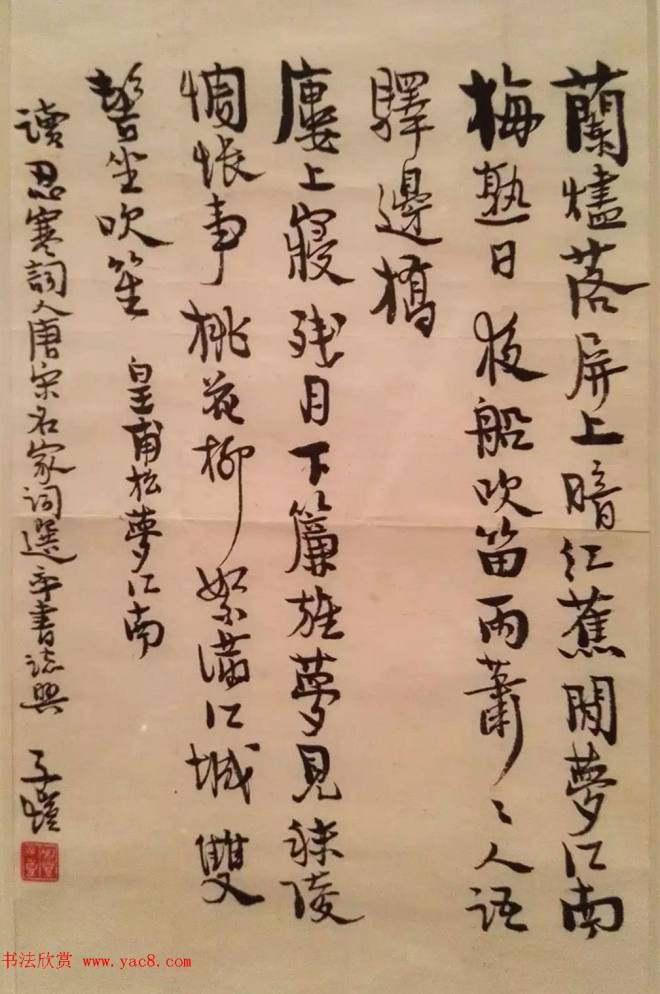 蘭燼落屏上暗红蕉閒夢江南
梅熟日夜船吹笛雨蕭々人语
驛邊橋
廔上寢残月下簾旌夢見秣陵
惆悵事桃花柳絮滿江城雙
髻坐吹笙 皇甫松夢江南
读忍寒詞人唐宋名家词選率書誌興 子愷
书法欣赏 www.yac8.com